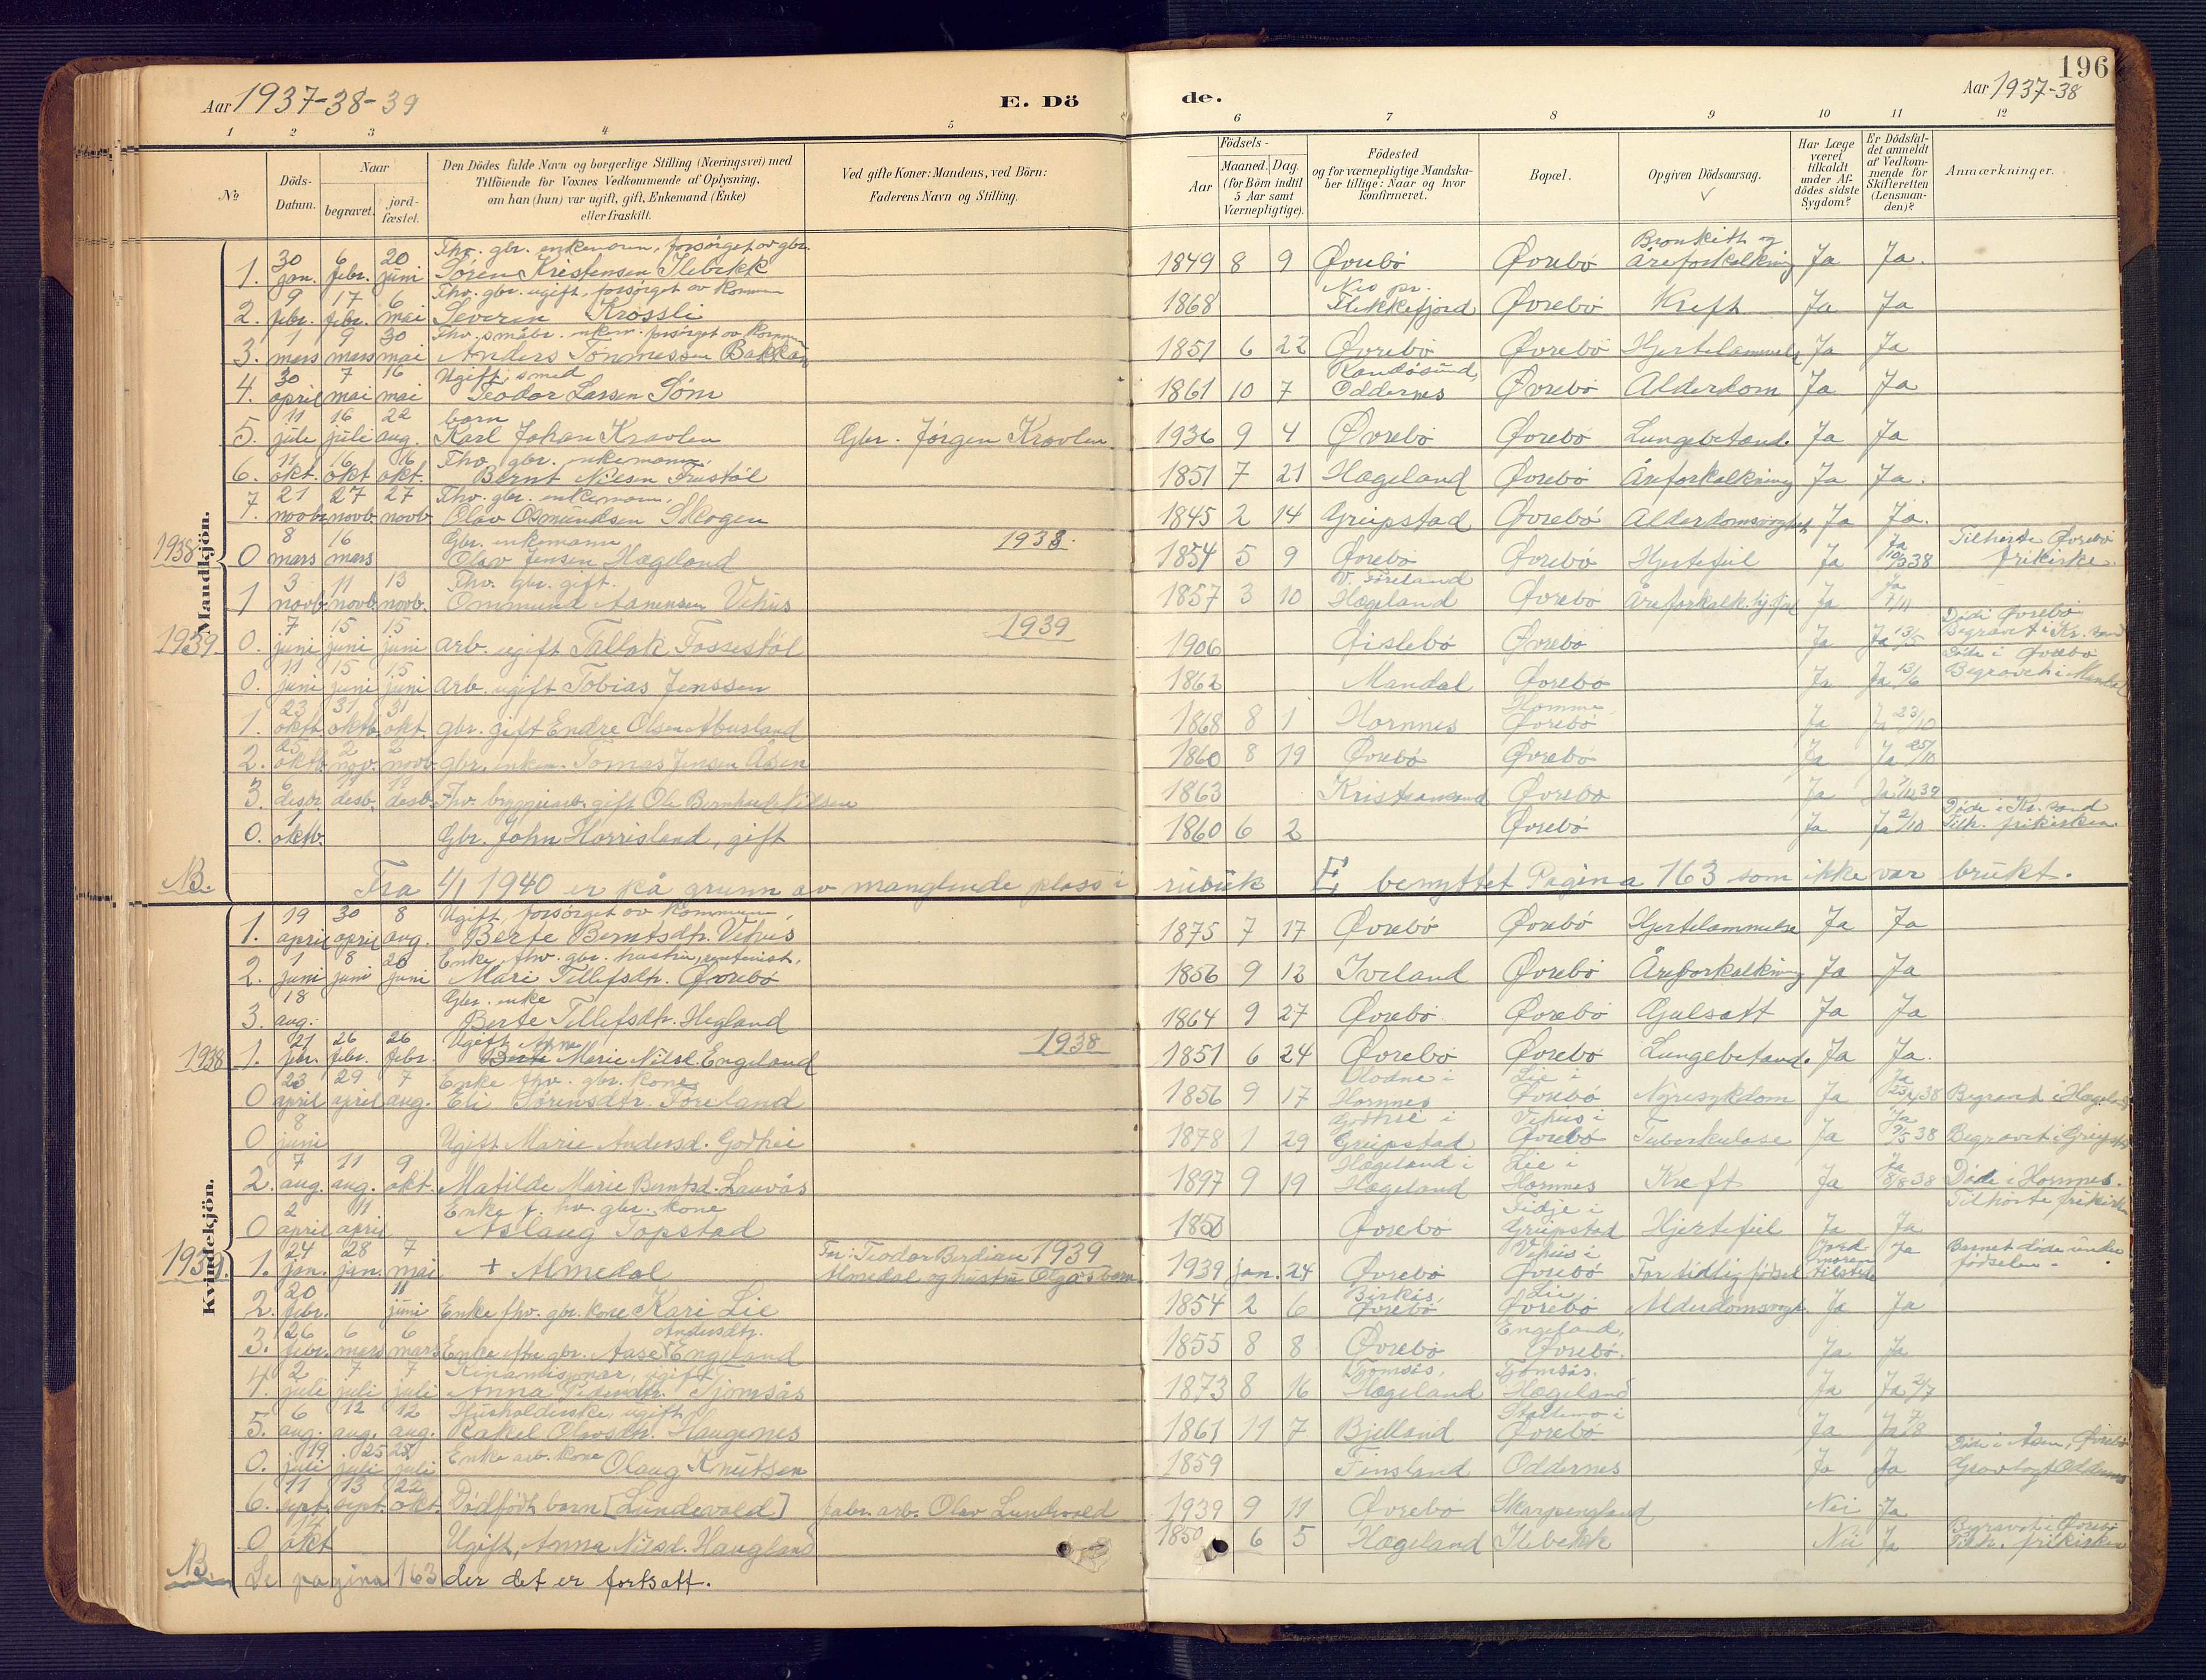 Aar 1937-38-39
E. Dö
de.
Aar 1937-38
196
1 2 3 4 5 6 7 8 9 10 11 12
№
Döds-Datum.
Naar
begravet.
jord-fæstet.
Den Dödes fulde Navn og borgerlige Stilling (Næringsvei) med
Tilföiende for Voxnes Vedkommende af Oplysning,
om han (hun) var ugift, gift, Enkemand (Enke)
eller fraskilt.
Ved gifte Koner: Mandens, ved Börn:
Faderens Navn og Stilling.
Födsels-
Aar
Maaned. Dag.
(for Börn indtil
5 Aar samt
Værnepligtige).
Födested
og for værnepligtige Mandska-
ber tillige: Naar og hvor
konfirmeret.
Bopæl.
Opgiven Dödsaarsag.
Har Læge
været
tilkaldt
under Af-
dödes sidste
Sygdom?
Er Dödsfal-
det anmeldt
af Vedkom-
mende for
Skifteretten
(Lensman-
den)?
Anmærkninger.
Mandkjön.
1. 30 jan. 6 febr. 20 juni Fhv. gbr. enkemann, forsörget av gbr. Sören Kristensen Ilebekk 1849 8 9 Øvrebö Øvrebö Bronkitt og Åreforkalkning Ja Ja.
2. 9 febr. 17 febr. 6 mai Fhv. gbr. ugift, forsörget av kommun Severin Krossli 1868 Flekkefjord Øvrebö Kreft Ja Ja
3. 1 mars 9 mars 30 mai Fhv. småbr. enkem. forsörget av kommun Anders Tönnessen Bakkan 1851 6 22 Øvrebö Øvrebö Hjertelammelse Ja Ja
4. 30 april 7 mai 16 mai Ugift, smed Teodor Larsen Söm 1861 10 7 Randösund, Oddernes Øvrebö Alderdom Ja Ja
5. 11 juli 16 juli 22 aug. barn Karl Johan Kravlen Gbr. Jörgen Kravlen 1936 9 4 Øvrebö Øvrebö Lungebetend. Ja Ja
6. 11 okt. 16 okt 16 okt. Fhv. gbr. enkemann, Bernt Nilsen Frustöl 1851 7 21 Hægeland Øvrebö Åreforkalkning Ja Ja.
7. 21 novb. 27 novb. 27 novb. Fhv. gbr. enkemann, Olav Osmundsen Skogen 1845 2 14 Greipstad Øvrebö Alderdomsvaghet Ja Ja.
1938
1938.
0 8 mars 16 mars Gbr. enkemann Olav Jensen Hægeland 1854 5 9 Øvrebö Øvrebö Hjertefeil Ja Ja 10/3 38 Tilhörte Øvrebö frikirke.
1 3 novb. 11 novb. 13 novb. Fhv. gbr. gift. Ommund Aanensen Vehus 1857 3 10 V. Föreland Hægeland Øvrebö Åreforkalk. hj.feil Ja Ja 7/11
1939.
1939
0. 7 juni 15 juni 15 juni arb. ugift Tallak Fossestöl 1906 Øislebö Øvrebö Ja Ja 13/5 Död i Øvrebö Begravet i Kr.sand
0. 11 juni 15 juni 15 juni arb. ugift Tobias Jenssen 1862 Mandal Øvrebö Ja Ja 13/6 Döde i Øvrebö Begravet i Mandal
1. 23 oktb. 31 oktb. 31 okt. gbr. gift Endre Olsen Abusland 1868 8 1 Hornnes Homme, Øvrebö Ja Ja 23/10
2. 25 oktb. 2 nov. 2 novb. gbr. enkem. Tomas Jensen Åsen 1860 8 19 Øvrebö Øvrebö Ja Ja 25/10
3. 6 desbr. 11 desb. 11 desb. Fhv. bryggearb. gift Ole Bernhard Nilsen 1863 Kristiansand Øvrebö Ja Ja 7/12 39
0. 1 oktb. Gbr. John Horrisland, gift 1860 6 2 Øvrebö Ja Ja 2/10 Döde i Kr.sand Tilh. frikirken.
NB. Fra 1/1 1940 er på grunn av manglende plass i rubrik E benyttet Pagina 163 som ikke var brukt.
Kvindekjön.
1. 19 april 30 april 8 aug. Ugift, forsörget av kommunen, Berte Berntsdtr. Vehus 1875 7 17 Øvrebö Øvrebö Hjertelammelse Ja Ja
2. 1 juni 8 juni 20 juni Enke, fhv. gbr. hustru, Mari Tellefsdtr. Øvrebö 1856 9 12 Iveland Øvrebö Åreforkalkning Ja Ja
3 18 aug. Gbr. enke Berte Tellefsdtr. Hegland 1864 9 27 Øvrebö Øvrebö Gulsott Ja Ja
1938
1938
1. 21 febr. 26 febr. 26 febr. Ugift Anne Marie Nilsd. Engeland 1851 6 24 Øvrebö Øvrebö Lungebetend. Ja Ja.
0 23 april 29 april 7 aug. Enke fhv. gbr. kone, Eli Sörensdtr. Föreland 1856 9 17 Hornnes Lie i Øvrebö Nyresykdom Ja Ja 23/4 38 Begravet i Hægeland
0 8 juni Ugift Marie Andersd. Godhei 1878 1 29 Godhei i Greipstad Vehus i Øvrebö Tuberkulose Ja Ja 9/5 38 Begravet i Greipstad
2. 7 aug. 11 aug. 9 okt. Matilde Marie Berntsd. Lauvås 1897 9 19 Hægeland i Hægeland Lie i Hornnes Kreft Ja Ja 8/8 38 Döde i Hornnes.
0 2 april 11 april Enke f. hv. gbr. kone Aslaug Topstad 1850 Øvrebö Tidje i Greipstad Hjertefeil Ja Ja Tilhörte frikirken
1939.
1939
1. 24 jan. 28 jan. 7 mai + Almedal Far: Teodor Berdian Almedal og hustru Olgas barn 1939 jan. 24 Øvrebö Vehus i Øvrebö For tidlig födsel Jordmoren tilstede Ja Barnet döde under födselen.
2. 20 febr. 11 juni Enke fhv. gbr. kone Kari Lie 1854 2 6 Birkås, Øvrebö Lie, Øvrebö Alderdomsvagh. Ja Ja
3. 26 febr. 6 mars 6 mars Enke efter gbr. Aase Andersdtr. Engeland 1855 8 8 Øvrebö Engeland, Øvrebö. Ja Ja
4. 2 juli 7 juli 7 juli Kinamisjonær, ugift Anna Tjomsås 1873 8 16 Tjomsås, Hægeland Tjomsås. Hægeland Ja Ja 2/7
5. 6 aug. 12 aug. 12 aug. Husholderske, ugift, Rakel Olavsdtr. Haugenes 1861 11 7 Bjelland Stallemo i Øvrebö Ja Ja 7/8
0. 19 juli 25 juli 28 juli Enke arb. kone Olaug Knutsen 1859 Finsland Oddernes Ja Ja Döde i Åsen, Øvrebö Gravlagt Oddernes
6. 11 sept. 13 sept. 22 okt. Dödfödt barn [Lundevold] fabr. arb. Olav Lundevold 1939 9 11 Øvrebö Skarpengland Nei Ja
0 14 okt Ugift, Anna Nilsd. Haugland 1850 6 5 Hægeland Ilebekk Nei Ja Begravet i Øvrebö Tilh. frikirken
NB. Se pagina 163 der det er fortsatt.